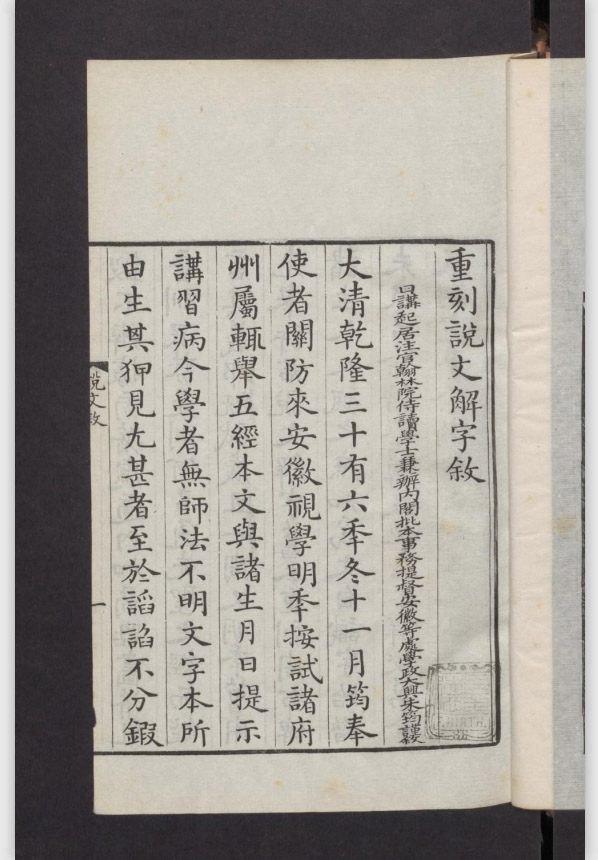 重刻說文解字敘
日講起居注官翰林院侍讀學士兼辦內閣批本事務提督安徽等處學政大興朱筠謹敘
大清乾隆三十有六秊冬十一月筠奉
使者關防來安徽視學明秊按試諸府
州屬輒舉五經本文與諸生月日提示
講習病今學者無師法不明文字本所
由生其狎見尢甚者至於謟諂不分鍜
說文敘
一